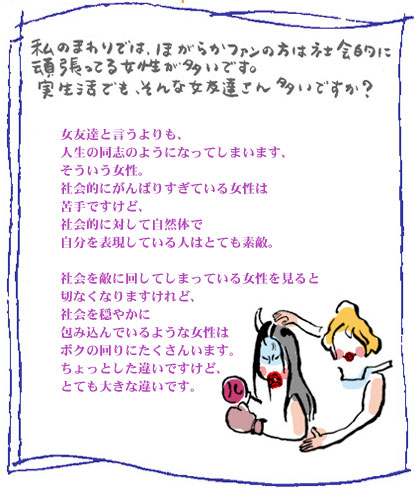 私のまわりでは、ほがらかファンの方は社会的に
頑張ってる女性が多いです。
実生活でも、そんな女友達さん多いですか？
女友達と言うよりも、
人生の同志のようになってしまいます、
そういう女性。
社会的にがんばりすぎている女性は
苦手ですけど、
社会的に対して自然体で
自分を表現している人はとても素敵。
社会を敵に回してしまっている女性を見ると
切なくなりますけれど、
社会を穏やかに
包み込んでいるような女性は
ボクの回りにたくさんいます。
ちょっとした違いですけど、
とても大きな違いです。